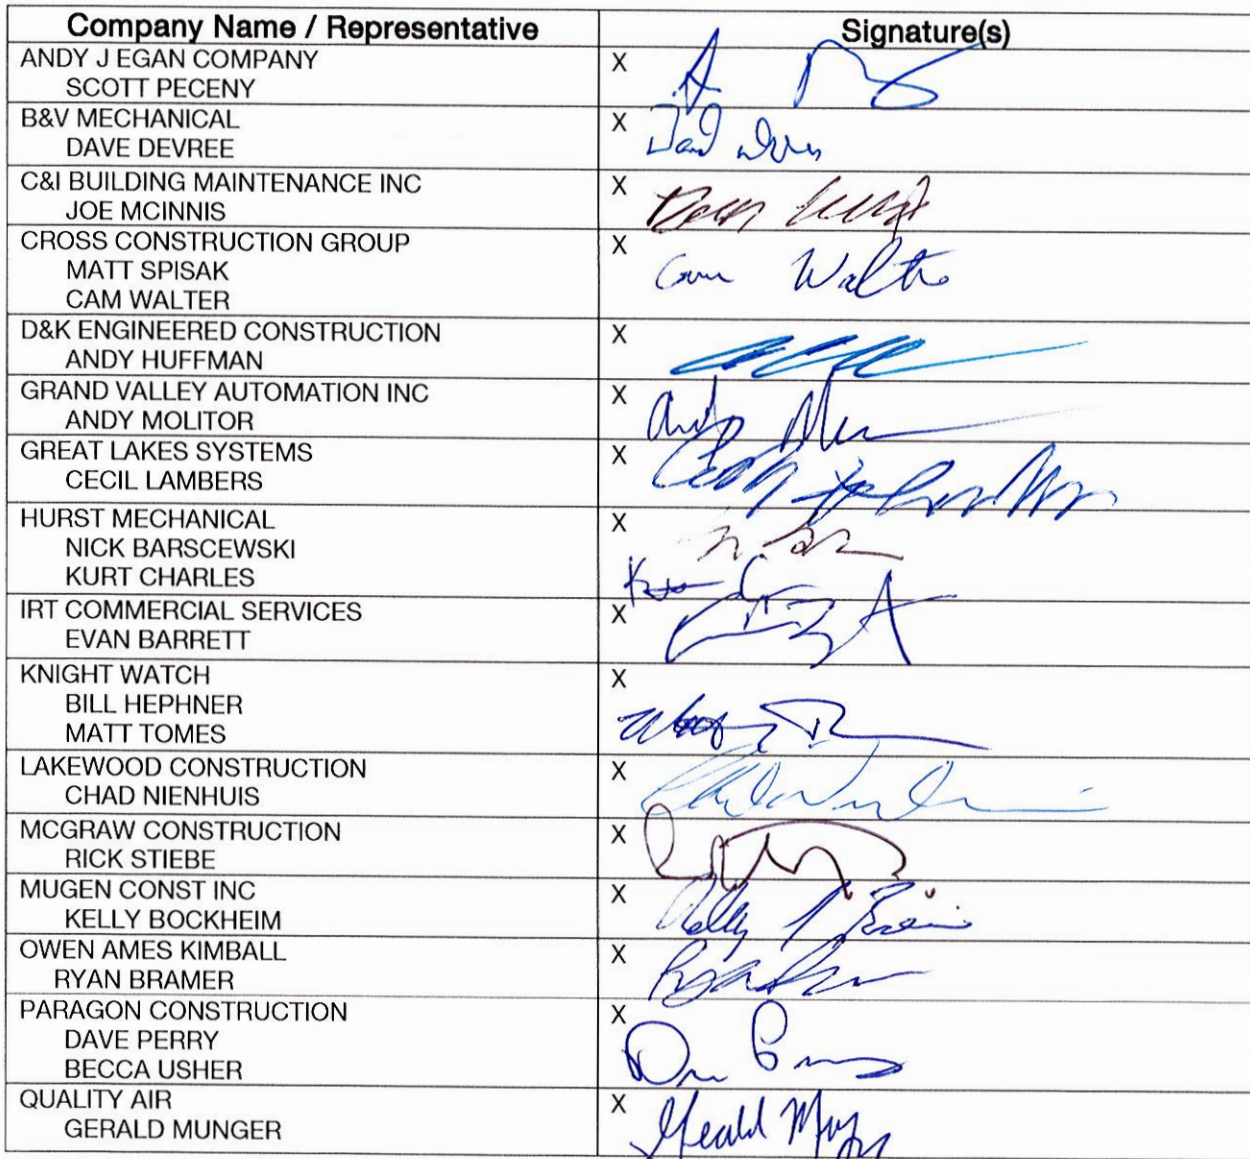 Company Name / Representative Signature(s)
ANDY J EGAN COMPANY X
SCOTT PECENY
B&V MECHANICAL X
DAVE DEVREE
C&I BUILDING MAINTENANCE INC X
JOE MCINNIS
CROSS CONSTRUCTION GROUP X
MATT SPISAK Cam Walter
CAM WALTER
D&K ENGINEERED CONSTRUCTION X
ANDY HUFFMAN
GRAND VALLEY AUTOMATION INC X
ANDY MOLITOR Andy
GREAT LAKES SYSTEMS X
CECIL LAMBERS
HURST MECHANICAL X
NICK BARSCEWSKI
KURT CHARLES
IRT COMMERCIAL SERVICES X
EVAN BARRETT
KNIGHT WATCH X
BILL HEPHNER
MATT TOMES
LAKEWOOD CONSTRUCTION X
CHAD NIENHUIS
MCGRAW CONSTRUCTION X
RICK STIEBE
MUGEN CONST INC X
KELLY BOCKHEIM Kelly
OWEN AMES KIMBALL X
RYAN BRAMER
PARAGON CONSTRUCTION X
DAVE PERRY
BECCA USHER
QUALITY AIR X
GERALD MUNGER Gerald